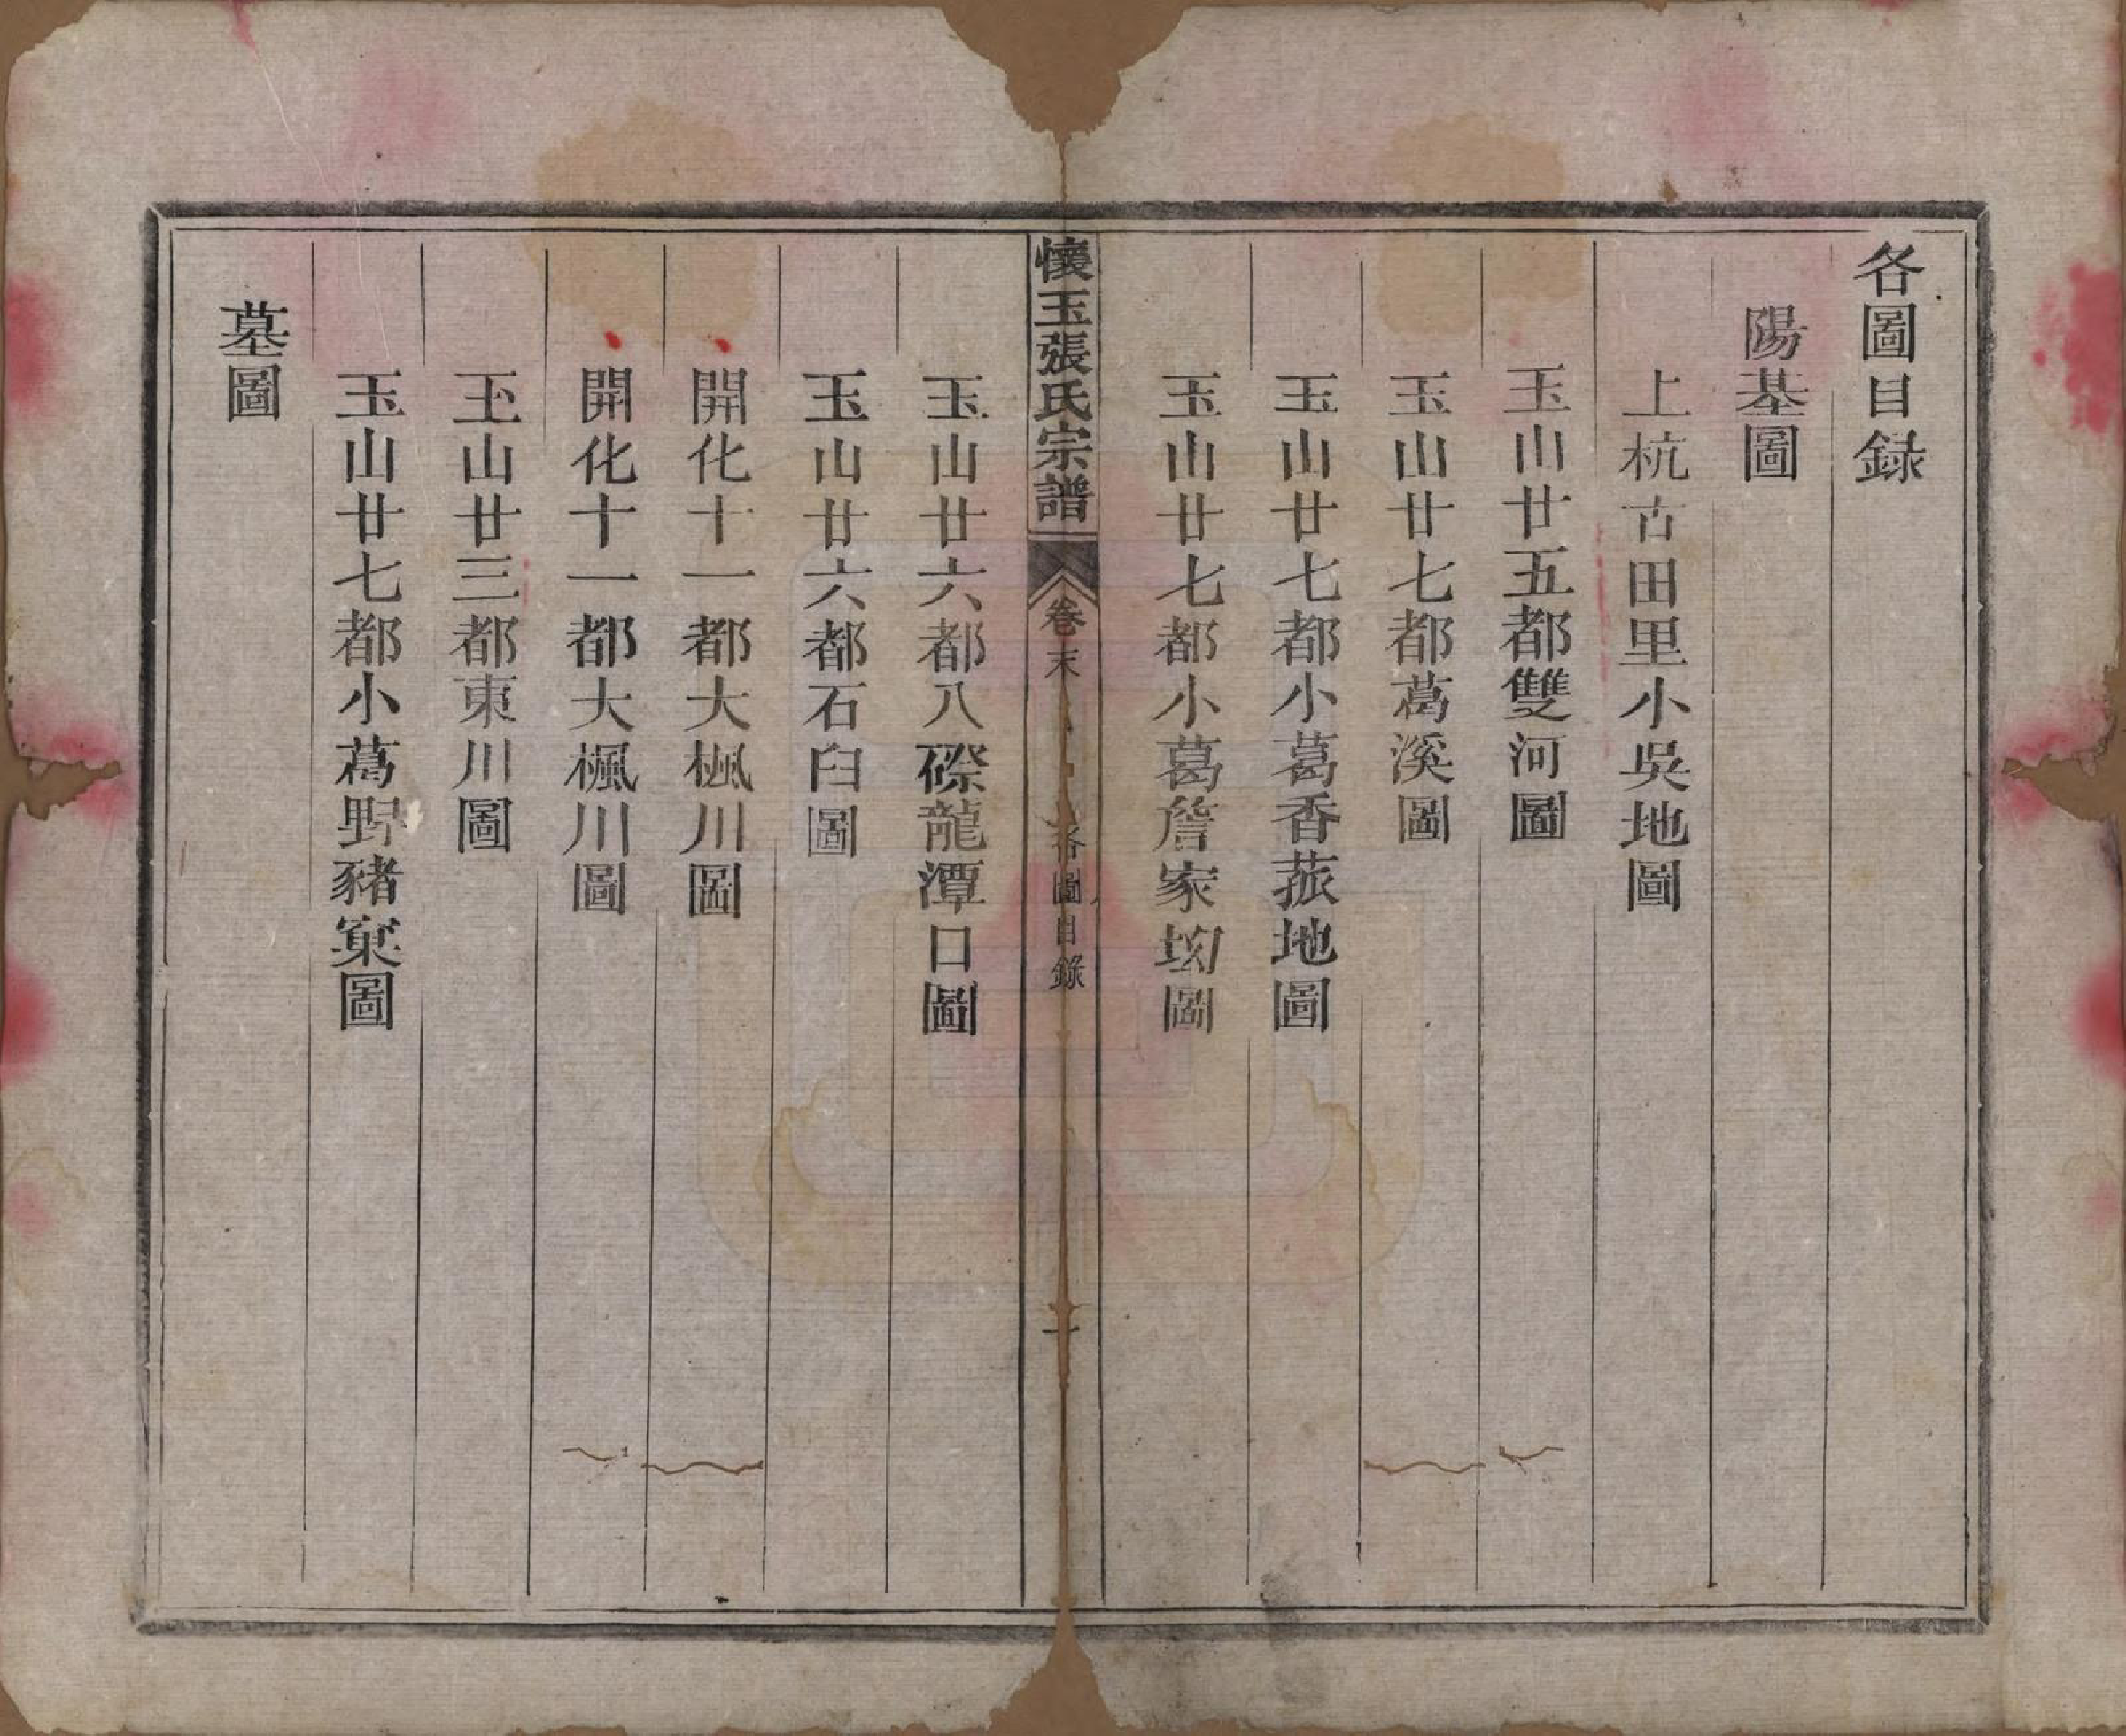 各圖目録
陽基圖
上杭古田里小吳地圖
玉山廿五都雙河圖
玉山廿七都葛溪圖
玉山廿七都小葛香菰地圖
玉山廿七都小葛詹家㘭圖
懷玉張氏宗譜
卷末
各圖目錄
一
玉山廿六都八磜龍潭口圖
玉山廿六都石臼圖
開化十一都大楓川圖
開化十一都大楓川圖
玉山廿三都東川圖
玉山廿七都小葛野豬窠圖
墓圖